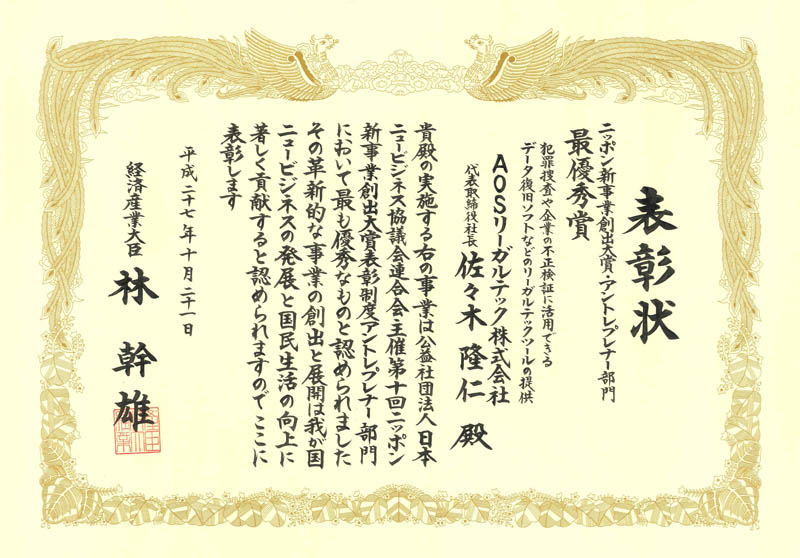 表彰状
ニッポン新事業創出大賞・アントレプレナー部門
最優秀賞
犯罪捜査や企業の不正検証に活用できる
データ復旧ソフトなどのリーガルテックツールの提供
AOSリーガルテック株式会社
代表取締役社長 佐々木隆仁 殿
貴殿の実施する右の事業は公益社団法人日本
ニュービジネス協議会連合会主催第十回ニッポン
新事業創出大賞表彰制度アントレプレナー部門
において最も優秀なものと認められました
その革新的な事業の創出と展開は我が国
ニュービジネスの発展と国民生活の向上に
著しく貢献すると認められますのでここに
表彰します
平成二十七年十月二十一日
経済産業大臣 林幹雄